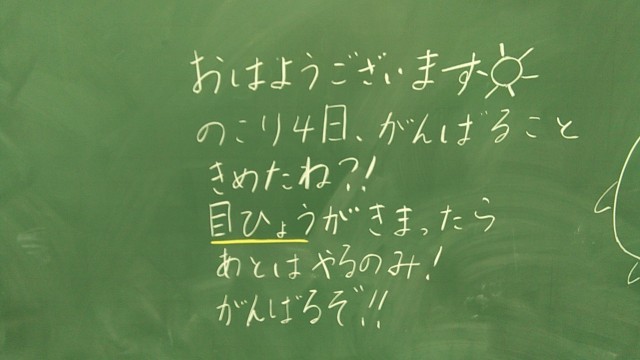 おはようございます
のこり4日、がんばること
きめたね?!
目ひょうがきまったら
あとはやるのみ!
がんばるぞ!!